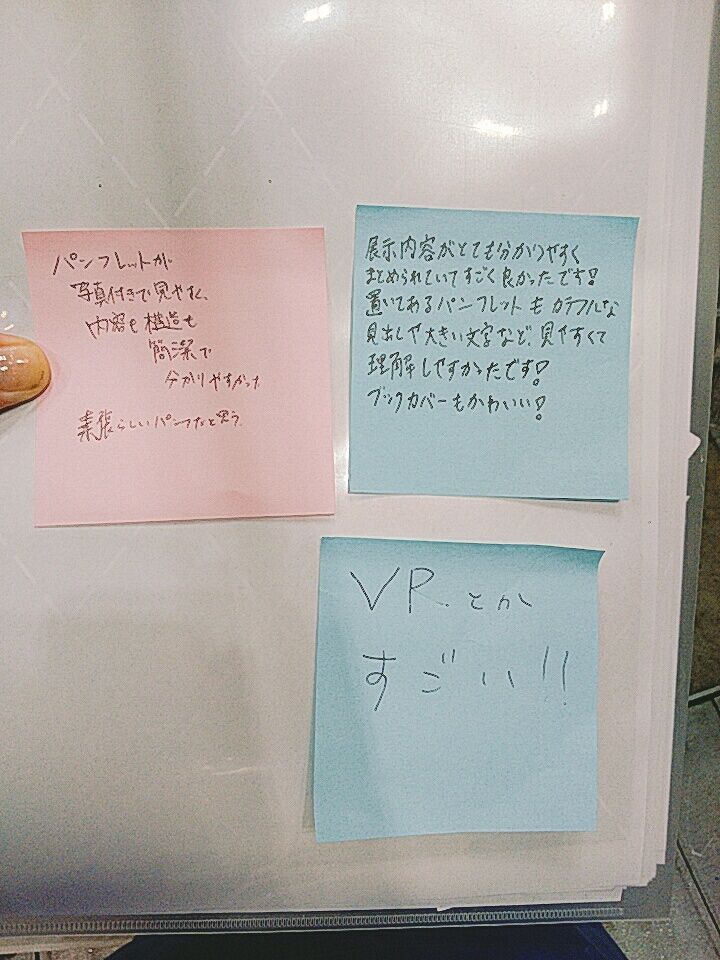 パンフレットが
写真付きで見やすく、
内容も構造も
簡潔で
分かりやすかった
素張らしいパンフだと思う。
展示内容がとても分かりやすく
まとめられていてすごく良かったです!
置いてあるパンフレットもカラフルな
見出しや大きい文字など、見やすくて
理解しやすかったです!
ブックカバーもかわいい!
VRとか
すごい!!